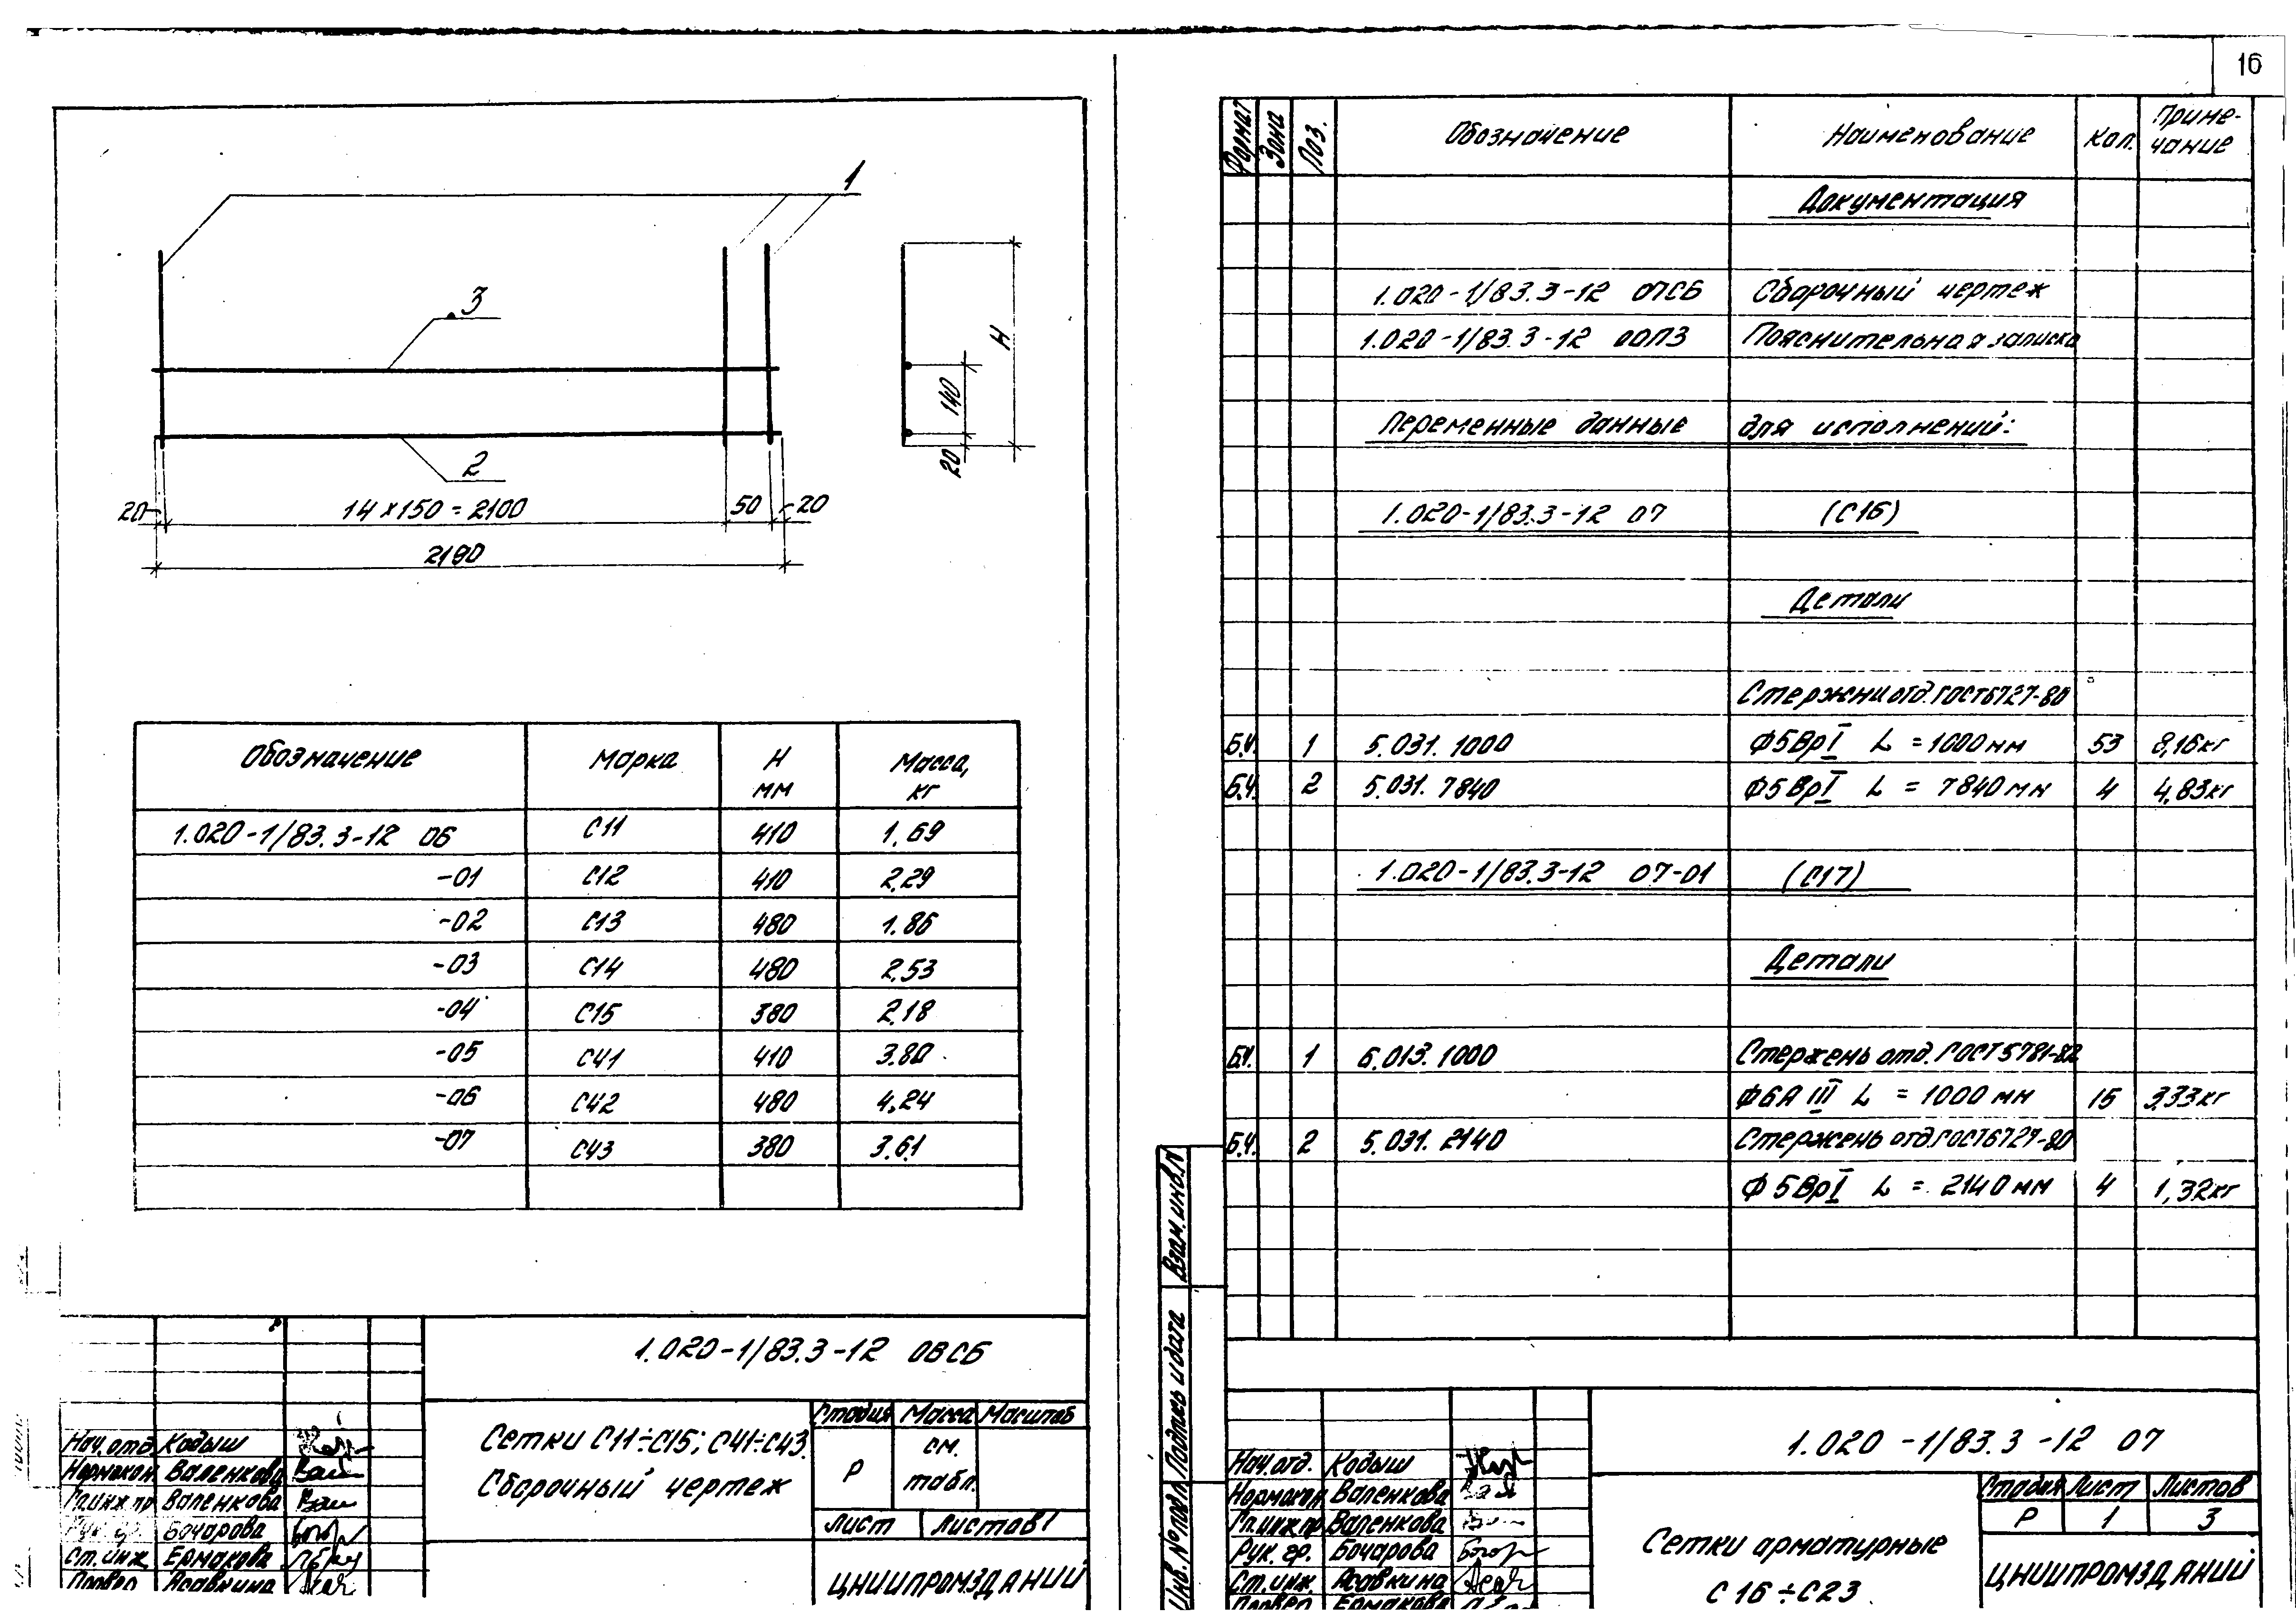 16
1
3
2
20
14×150=2100
50
20
2190
140
20
Н
Обозначение Марка Н мм Масса, кг
1.020-1/83.3-12 06 С11 410 1,69
-01 С12 410 2,29
-02 С13 480 1.86
-03 С14 480 2,53
-04 С15 380 2,18
-05 С41 410 3.80
-06 С42 480 4,24
-07 С43 380 3.61
1.020-1/83.3-12 06СБ
Сетки С11÷С15; С41÷С43.
Сборочный чертеж
Стадия Масса Масштаб
Р см. табл.
Лист Листов 1
ЦНИИПРОМЗДАНИЙ
Нач.отд Кодыш
Нормокон. Валенкова
Гл.инж.пр Валенкова
Рук. гр. Бочарова
Ст.инж. Ермакова
Провер. Асавкина
Формат Зона Поз. Обозначение Наименование Кол. Приме-чание
Документация
1.020-1/83.3-12 07СБ Сборочный чертеж
1.020-1/83.3-12 00ПЗ Пояснительная записка
Переменные данные для исполнений:
1.020-1/83.3-12 07 (С16)
Детали
Стержни отд. ГОСТ6727-80
Б.Ч. 1 5.031.1000 Ф5ВрI L=1000мм 53 8,16кг
Б.Ч. 2 5.031.7840 Ф5ВрI L=7840мм 4 4,83кг
1.020-1/83.3-12 07-01 (С17)
Детали
Б.Ч. 1 6.013.1000 Стержень отд. ГОСТ5781-82
Ф6АIII L=1000мм 15 3,33кг
Б.Ч. 2 5.031.2140 Стержень отд.ГОСТ6727-80
Ф5ВрI L=2140мм 4 1,32кг
Взам.инв.N
Подпись и дата
Инв.№подл.
1.020-1/83.3-12 07
Нач.отд. Кодыш
Нормокон Валенкова
Гл.инж.пр Валенкова
Рук. гр. Бочарова
Ст.инж. Асавкина
Провер. Ермакова
Сетки арматурные
С16÷С23
Стадия Лист Листов
Р 1 3
ЦНИИПРОМЗДАНИЙ